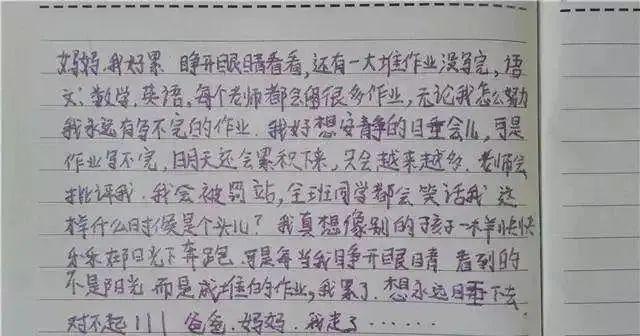 妈妈,我好累 睁开眼睛看看,还有一大堆作业没写完,语
文,数学,英语,每个老师都会留很多作业,无论我怎么努力
我永远有写不完的作业.我好想安静的睡会儿,可是
作业写不完,明天还会累积下来,只会越来越多.老师会
批评我.我会被罚站,全班同学都会笑话我 这
样什么时候是个头儿?我真想像别的孩子一样快快
乐乐在阳光下奔跑.可是每当我睁开眼睛 看到的
不是阳光 而是成堆的作业,我累了.想永远睡下去
对不起!!! 爸爸.妈妈.我走了……